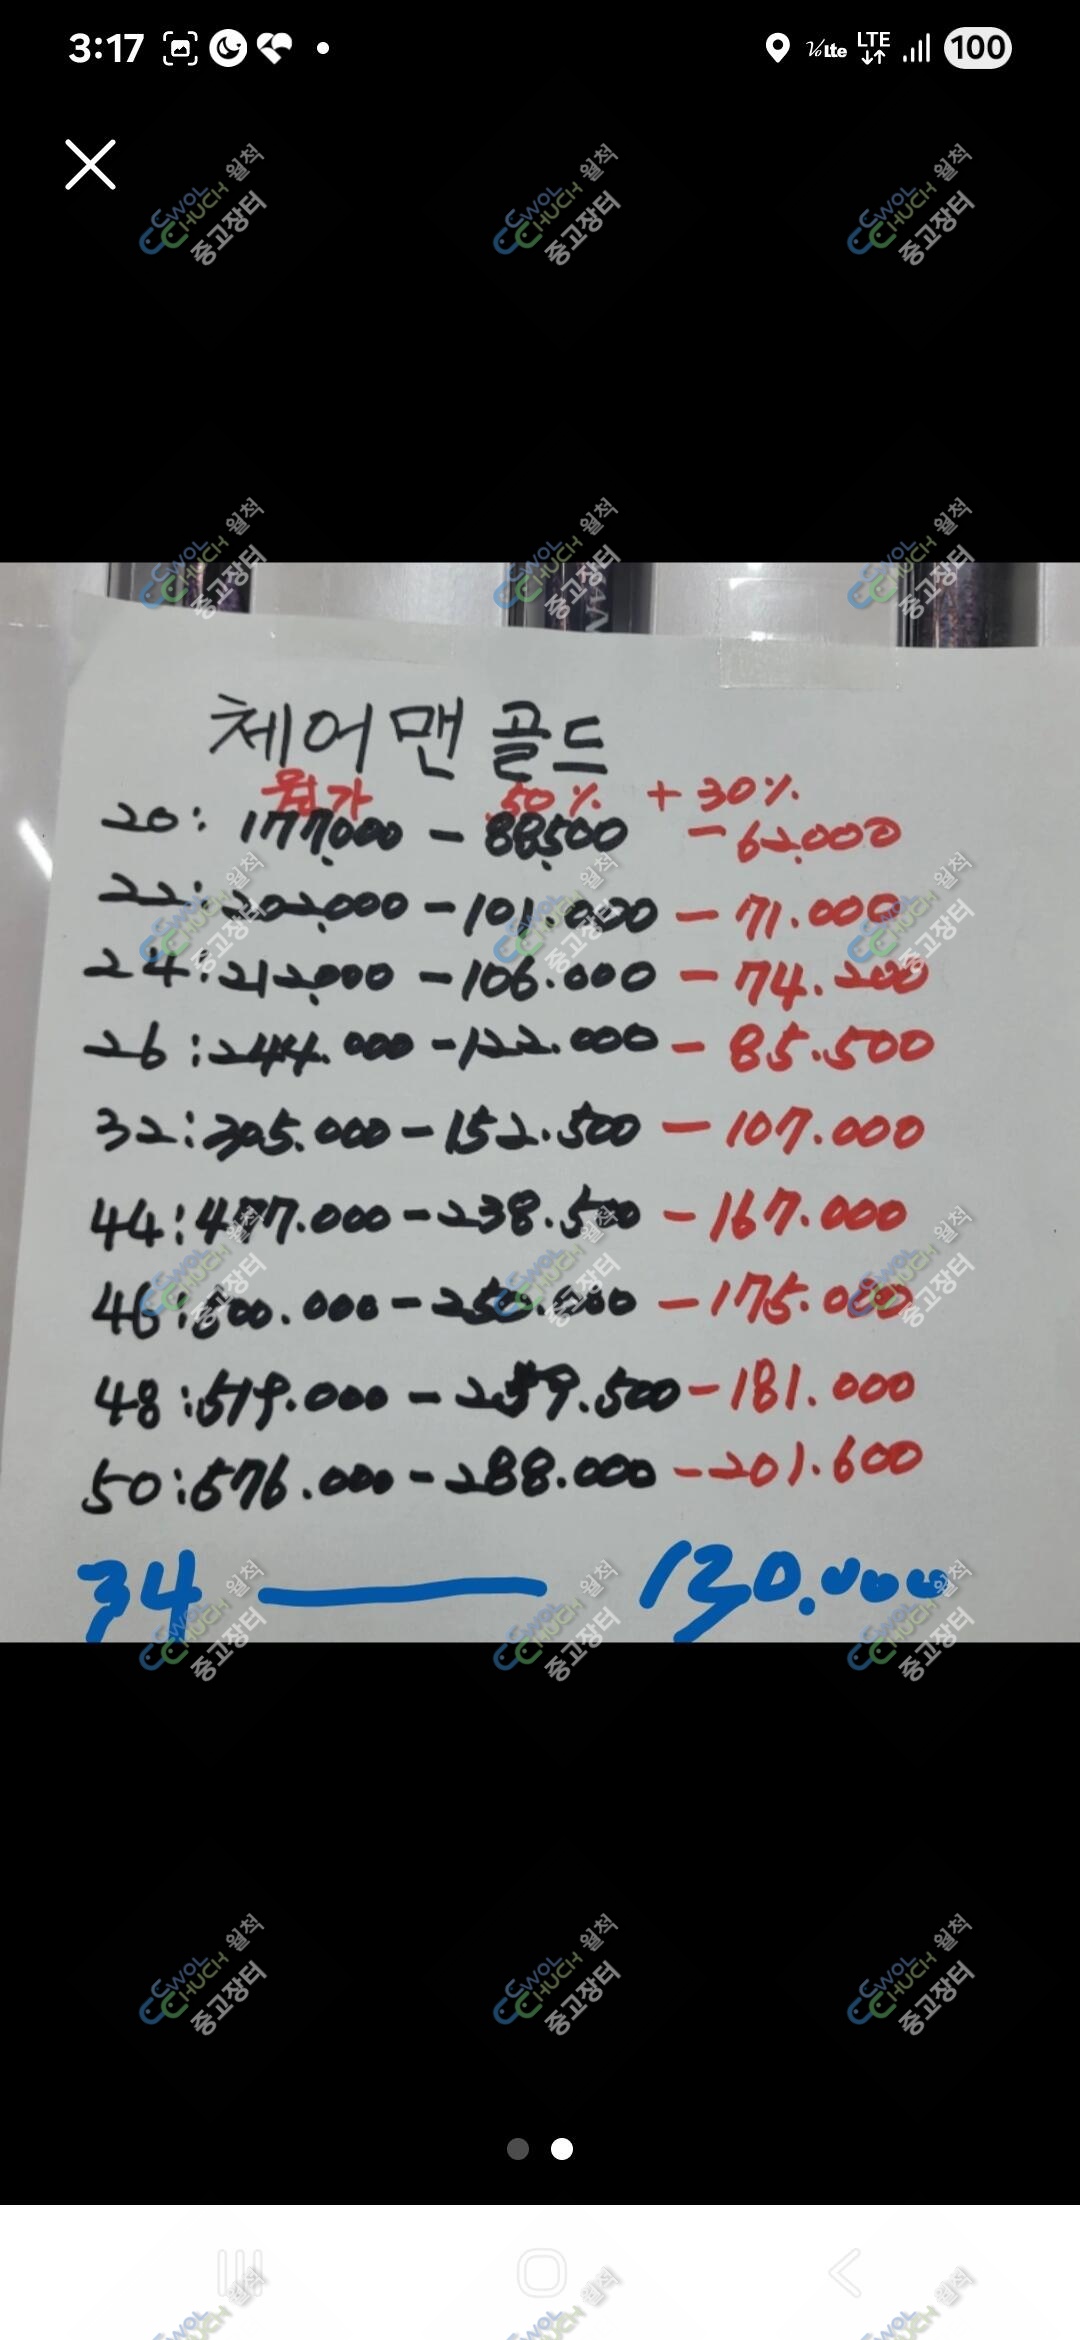 3:17 VoLte LTE 100
체어맨 골드
원가 50% + 30%
20: 177.000 - 88.500 - 62.000
22: 202.000 - 101.000 - 71.000
24: 212.000 - 106.000 - 74.200
26: 244.000 - 122.000 - 85.500
32: 305.000 - 152.500 - 107.000
44: 477.000 - 238.500 - 167.000
46: 500.000 - 250.000 - 175.000
48: 519.000 - 259.500 - 181.000
50: 576.000 - 288.000 - 201.600
34 — 130.000
CWOL CHUCH 월척 중고장터